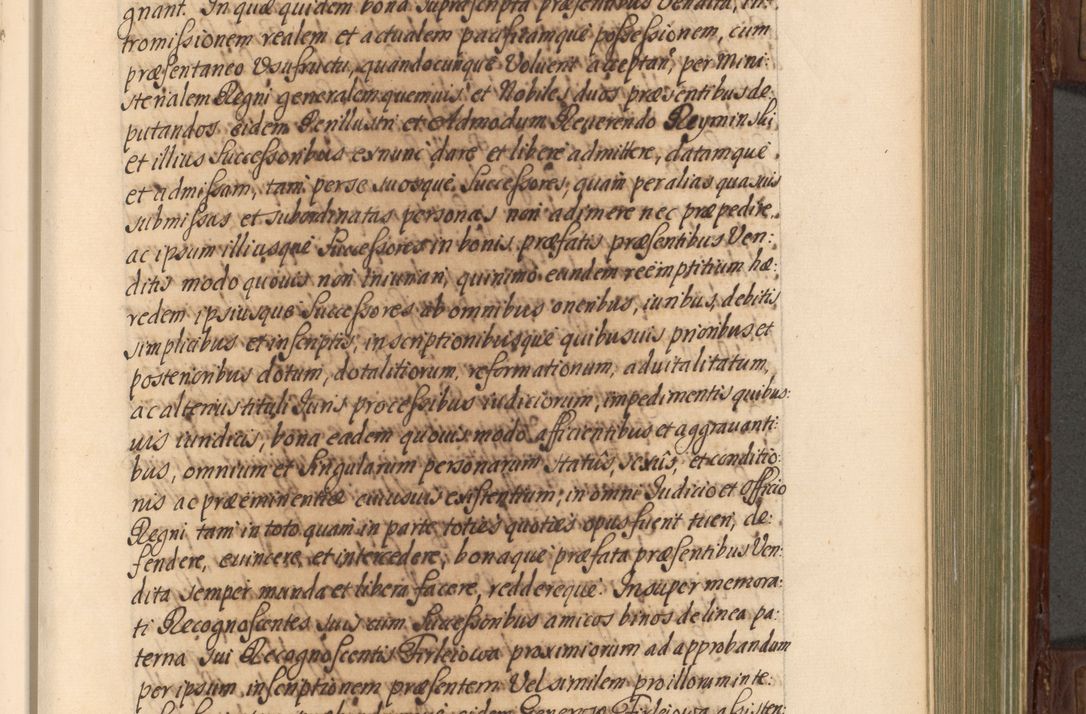 gnant. In quæ quidem bona supræscripta præsentibus Vendita, in:
tromissionem realem et actualem pacificamque possessionem, cum
præsentaneo Vsufructu, quandocunque Voluerit acceptañ, per Mini:
sterialem Regni generalem quemuis et Nobiles duos præsentibus de
putandos eidem Perillustri et Admodum Reuerendo Reyminski
et illius Successoribus exnunc dare et libere admittere, datamque
et admissam, tam per se suosque Successores, quam per alias quasuis
submissas et subordinatas personas non adimere nec præpedire,
ac ipsum illiusque Successores in bonis præfatis præsentibus Ven:
ditis modo quouis non iniuriari, quinimo eundem reëmptitium hæ:
redem ipsiusque Successores ab omnibus oneribus, iuribus, debitis
simplicibus et inscriptis, inscriptionibusque quibusuis prioribus et
posterioribus dotum, dotalitiorum, reformationum, aduitalitatum,
ac alterius tituli Iuris processibus iudiciorum, impedimentis quibus:
uis iuridicis, bona eadem quouis modo afficientibus et aggrauanti:
bus, omnium et singularum personarum statûs, sexûs, et conditio:
nis ac præeminentiæ cuiusuis existentium, in omni Iudicio et Officio
Regni tam in toto quam in parte toties quoties opus fuerit tueri, de:
fendere, euincere, et intercedere, bonaque præfata præsentibus Ven:
dita semper munda et libera facere, reddereque. Insuper memora:
ti Recognoscentes suis cum Successoribus amicos binos de linea pa:
terna sui Recognoscentis Firleiowa proximiorum ad approbandam
per ipsum inscriptionem præsentem Vel similem pro illorum inte: